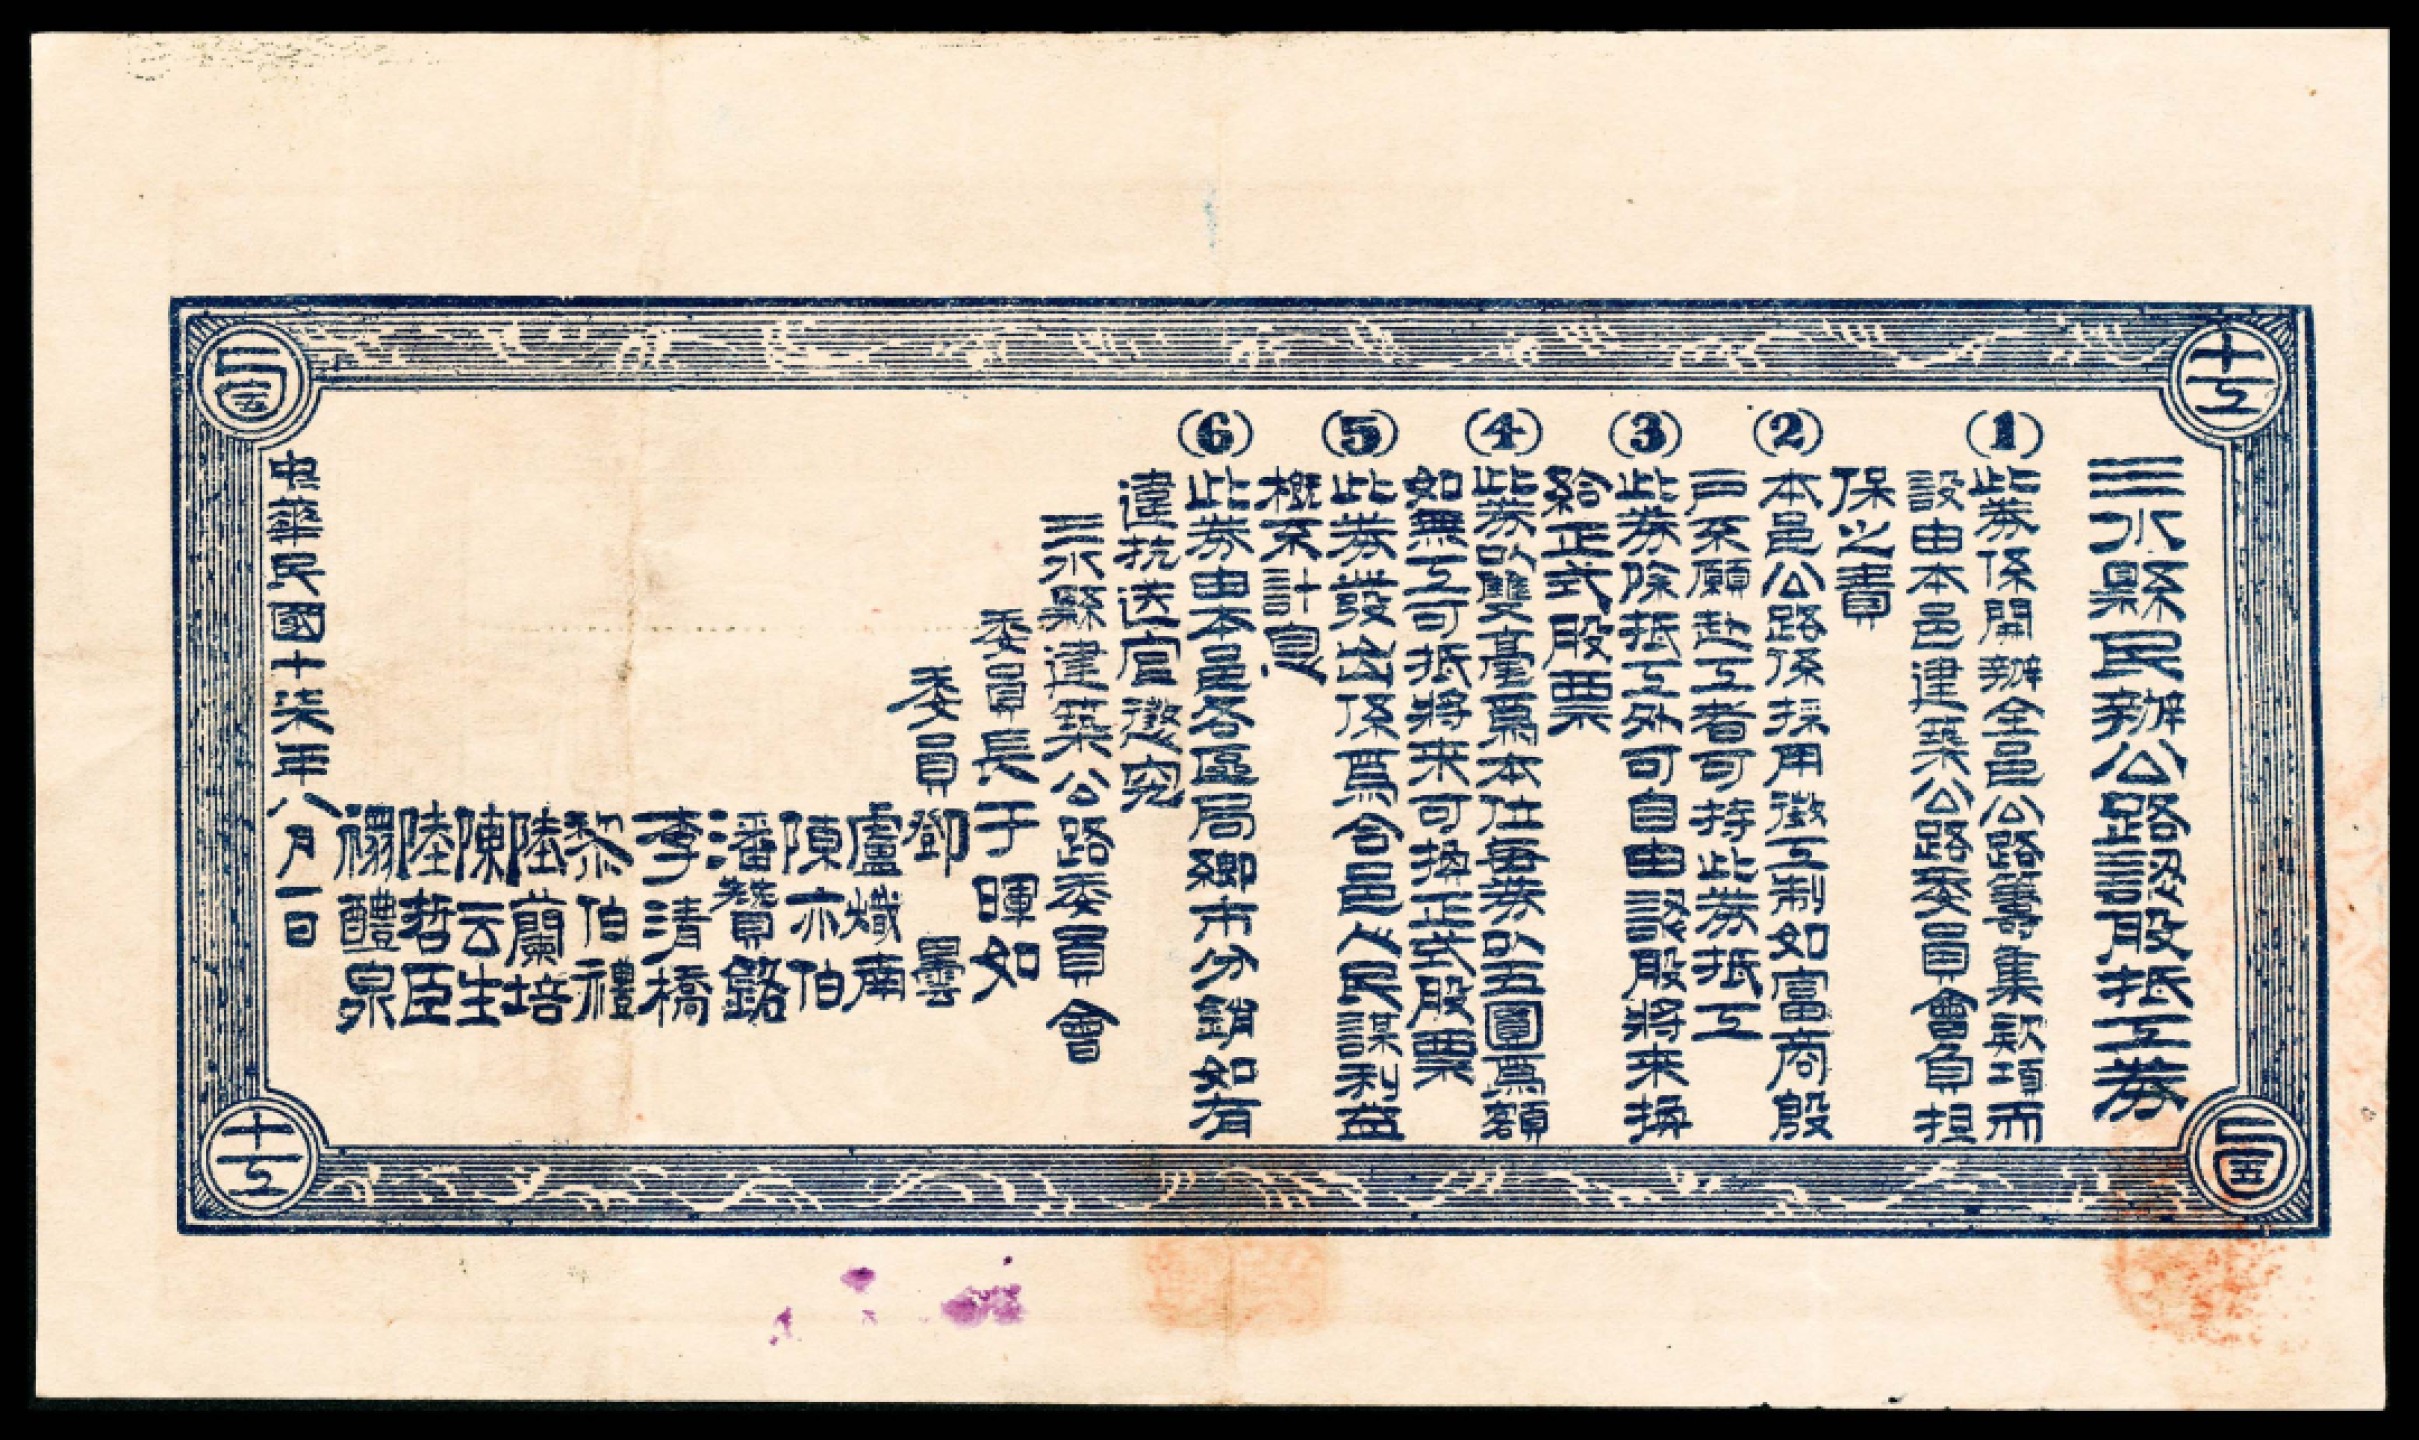 三水縣民辦公路認股抵工券
(1)此券係開辦全邑公路籌集款項而
設由本邑建築公路委員會負担
保之責
(2)本邑公路係採用徵工制如富商殷
戶不願赴工者可持此券抵工
(3)此券除抵工外可自由認股將來換
給正式股票
(4)此券以雙毫爲本位每券以五圓爲額
如無工可抵將來可換正式股票
(5)此券發出係爲合邑人民謀利益
概不計息
(6)此券由本邑各區局鄉市分銷如有
違抗送官懲究
三水縣建築公路委員會
委員長于暉如
委員鄧曇
盧熾南
陳亦伯
潘贊銘
李清橋
黎伯禮
陸蘭培
陳云生
陸哲臣
禤醴泉
中華民國十柒年八月一日
十工
五
十工
五